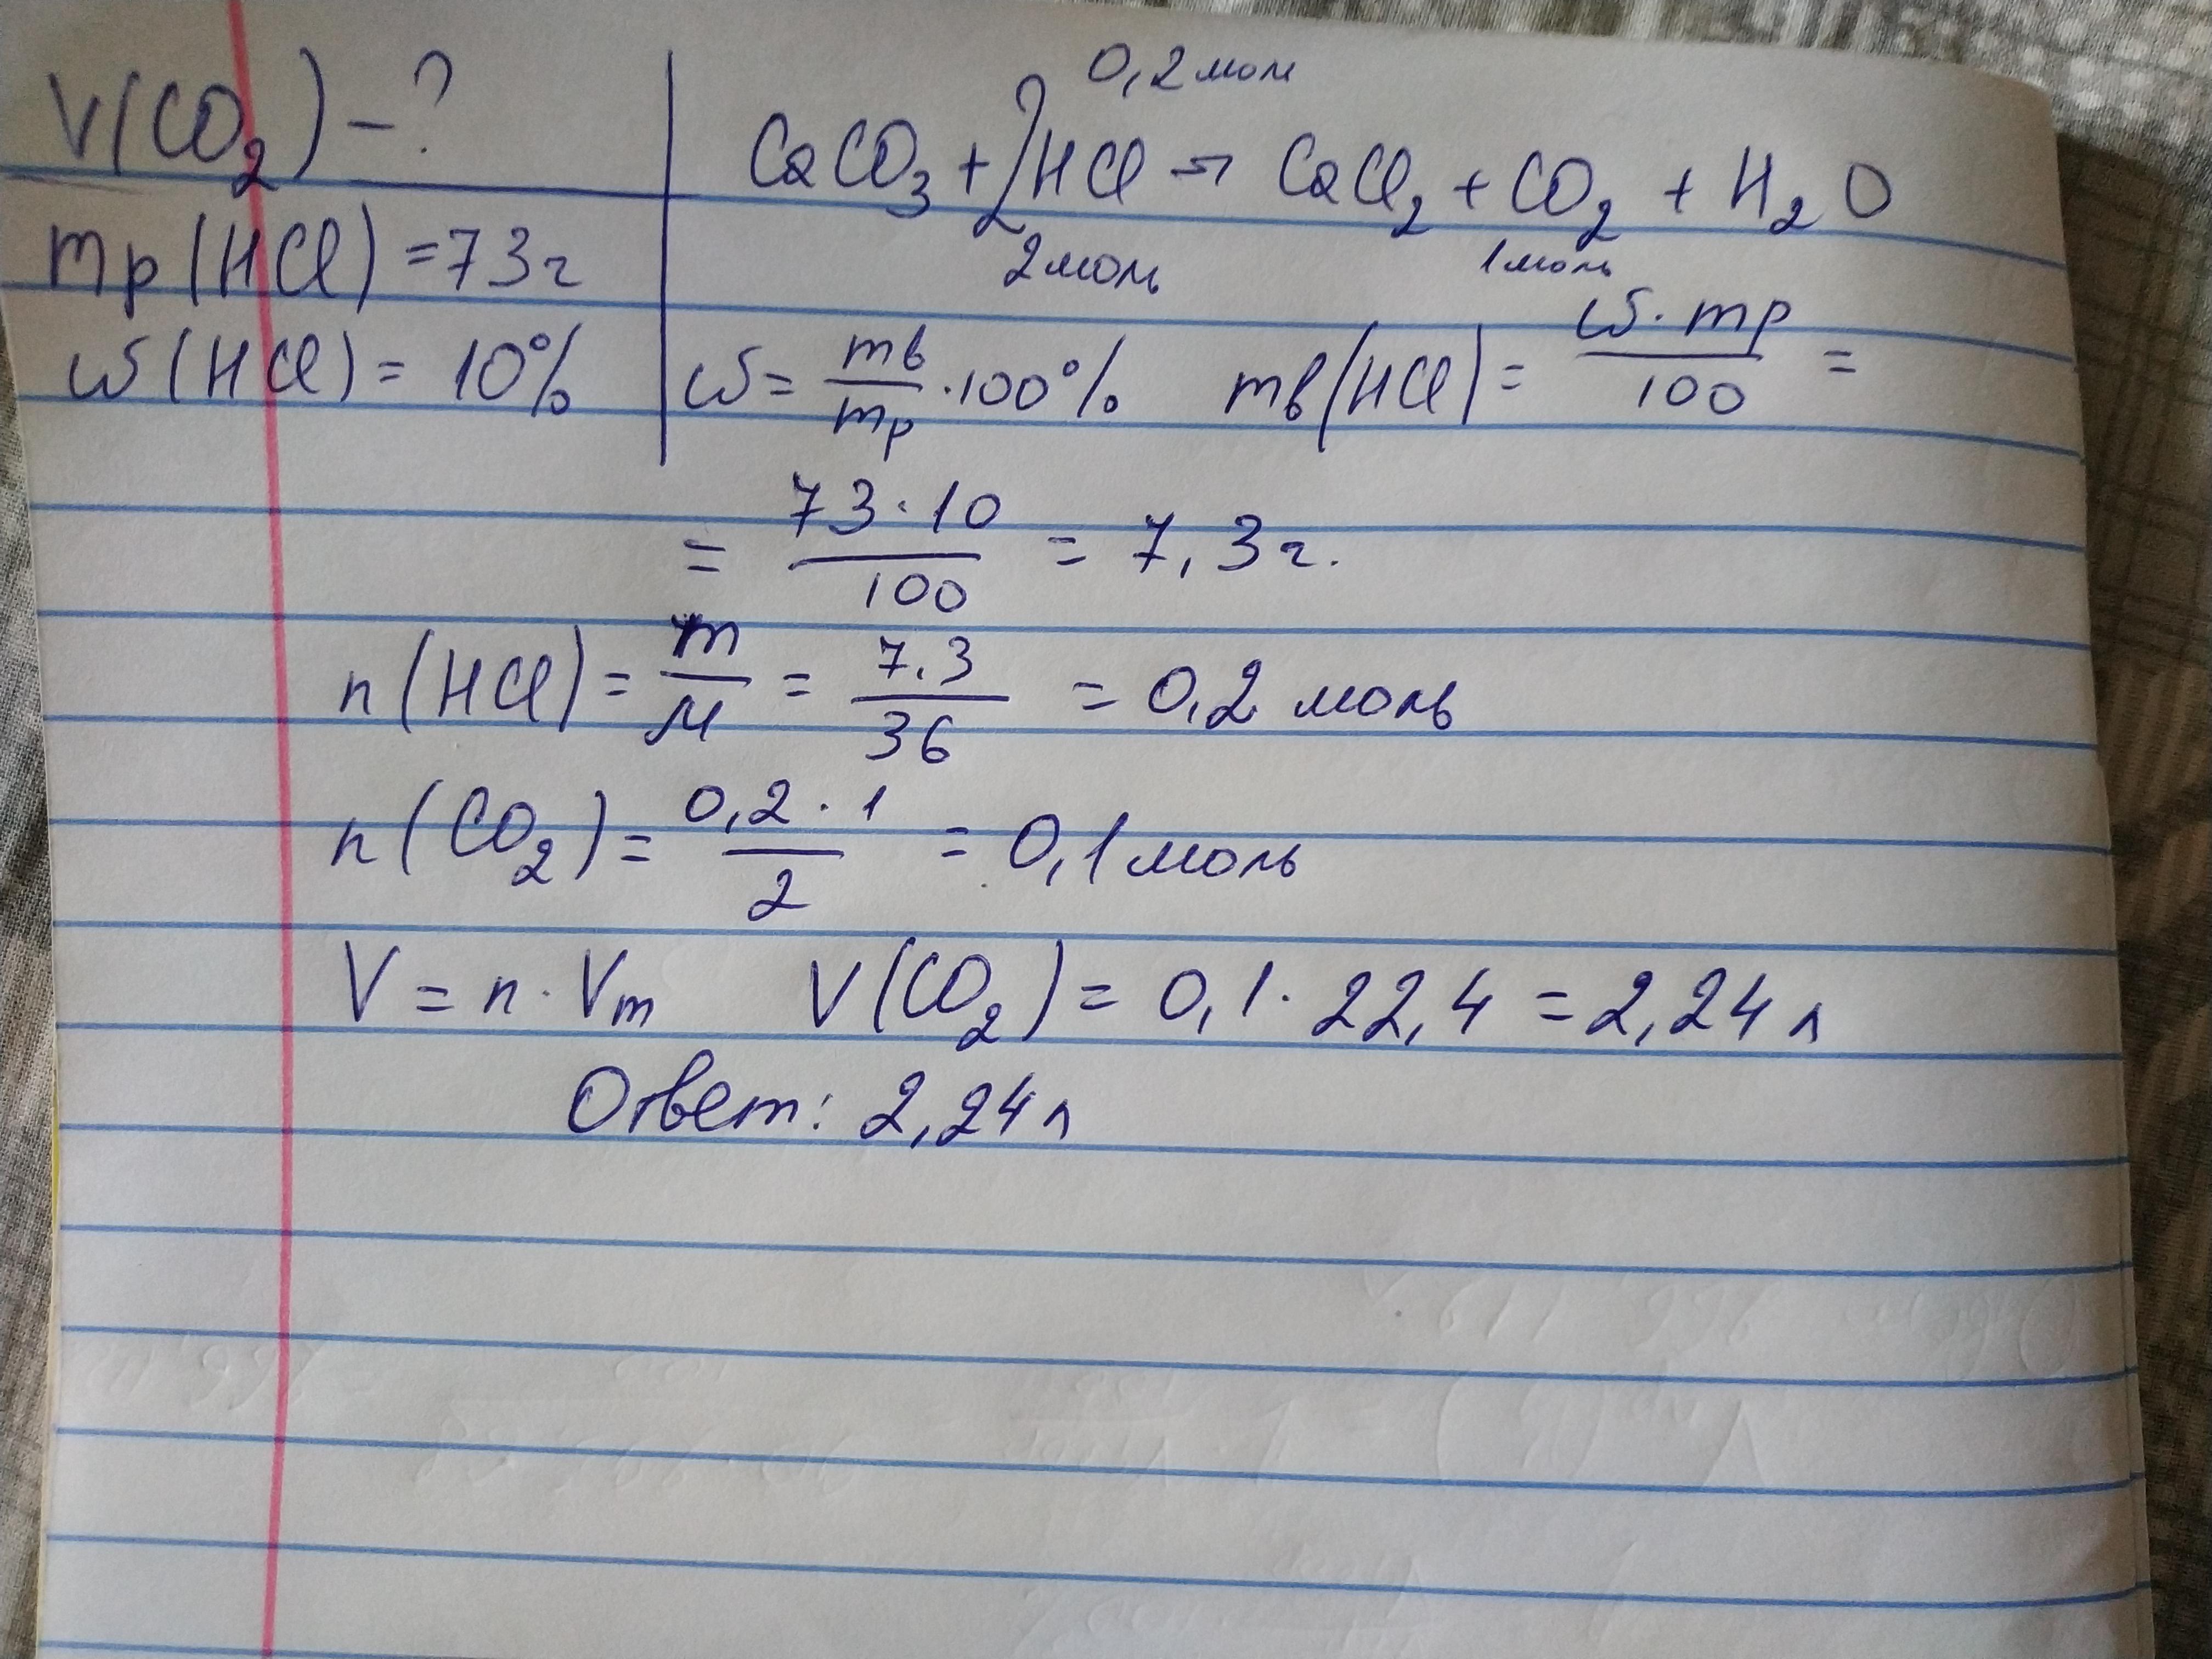 V(CO₂) - ?
mр(HCl) = 73г
ω(HCl) = 10%
0,2 мол
CaCO₃ + 2HCl → CaCl₂ + CO₂ + H₂O
2моль 1моль
ω = mв/mр · 100% mв(HCl) = ω · mр/100 =
= 73 · 10/100 = 7,3г.
n(HCl) = m/M = 7.3/36 = 0,2 моль
n(CO₂) = 0,2 · 1/2 = 0,1 моль
V = n · Vm V(CO₂) = 0,1 · 22,4 = 2,24 л
Ответ: 2,24 л